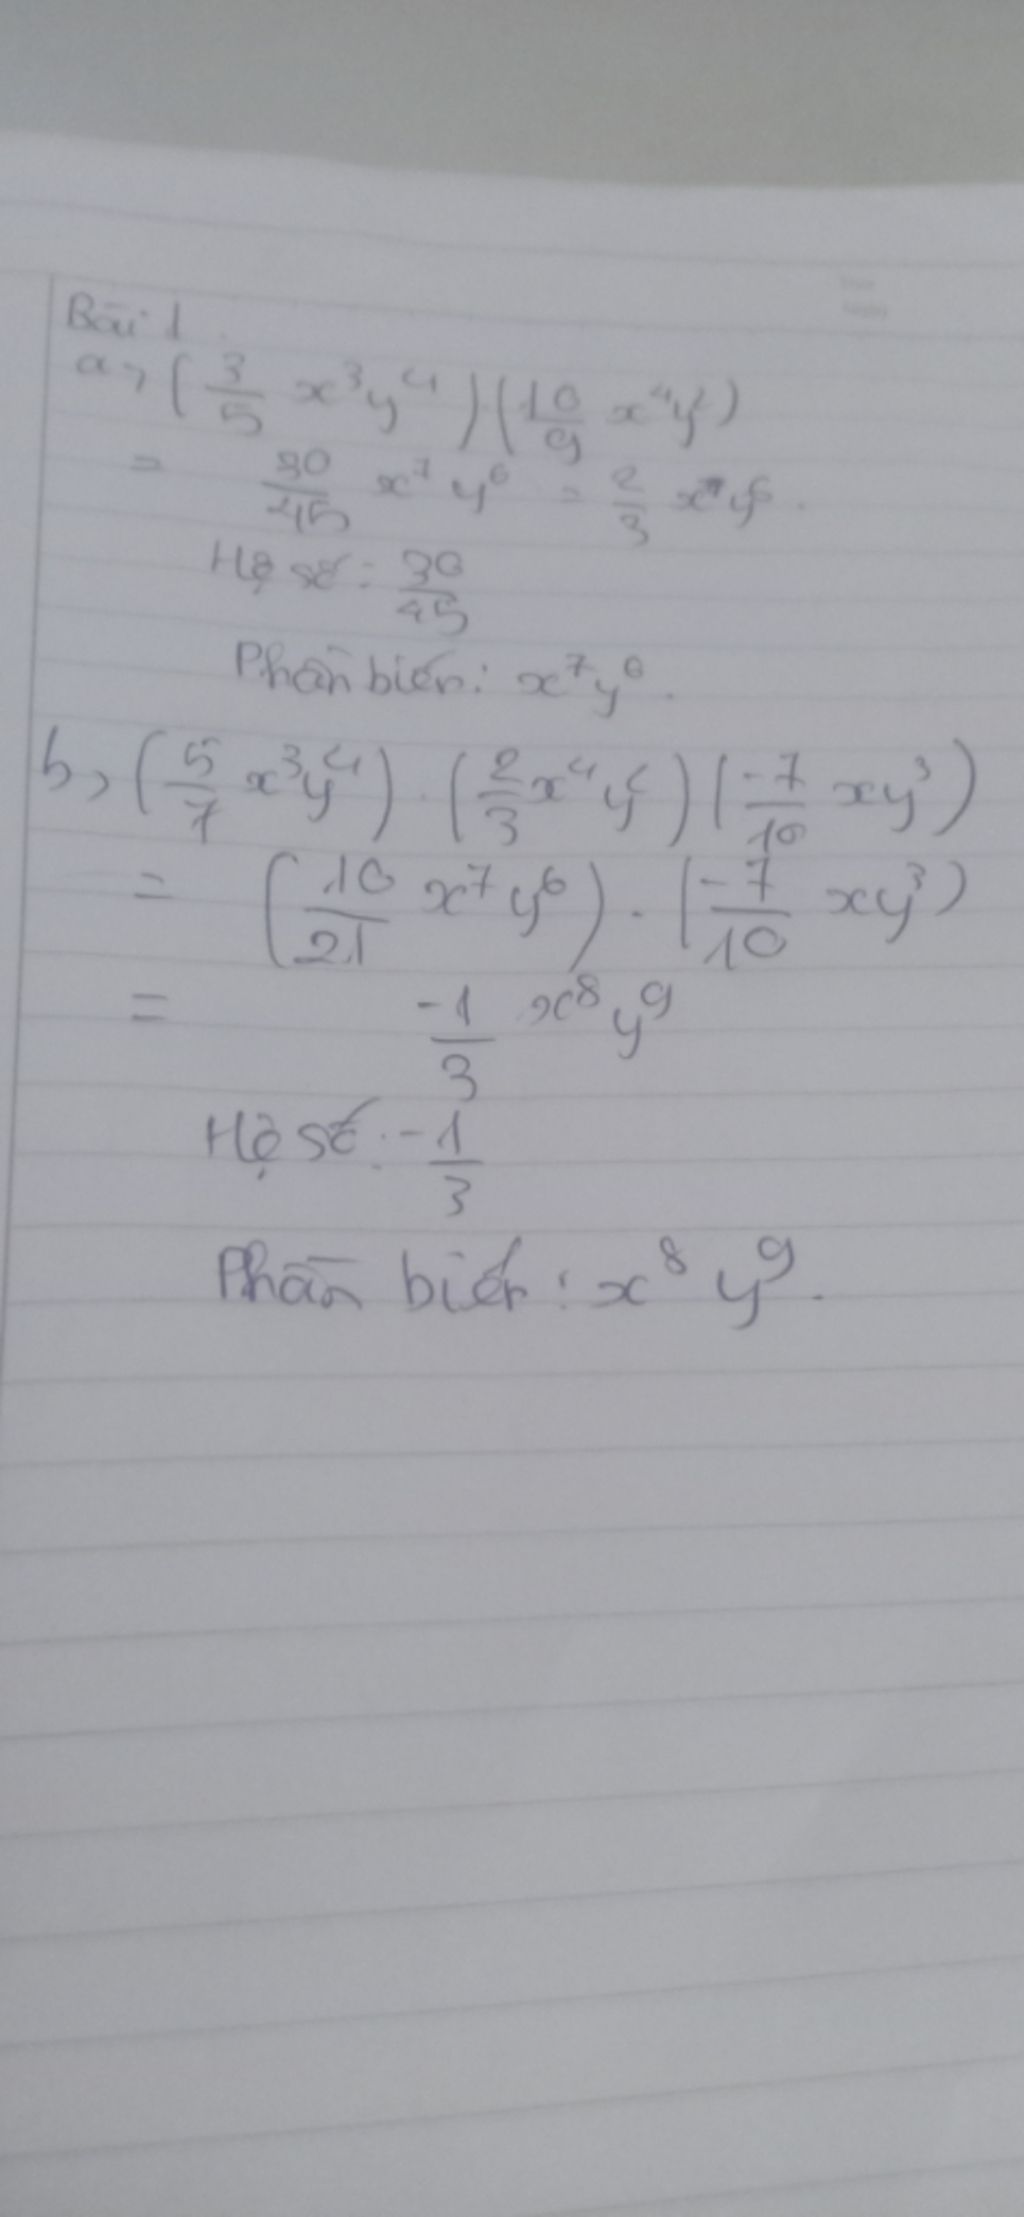 Bài 1.
a, (3/5 x³y⁴).(10/9 x⁴y²)
= 30/45 x⁷y⁶ = 2/3 x⁷y⁶.
Hệ số: 30/45
Phần biến: x⁷y⁶.
b, (5/7 x³y⁴).(2/3 x⁴y²)(-7/10 xy³)
= (10/21 x⁷y⁶).(-7/10 xy³)
= -1/3 x⁸y⁹
Hệ số: -1/3
Phần biến: x⁸y⁹.